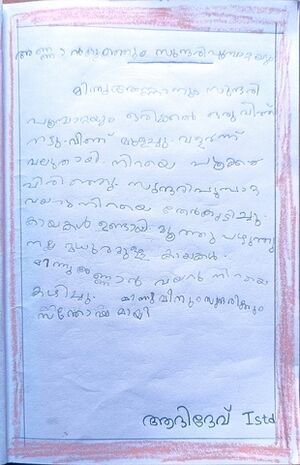 അണ്ണാൻകുഞ്ഞും സുന്ദരിപൂമ്പാറ്റയും
മിന്നുതത്തമ്മയും സുന്ദരി
പൂമ്പാറ്റയും ഒരിക്കൽ ഒരു വിത്ത്
നട്ടു. വിത്ത് മുളച്ചു. വളർന്ന്
വലുതായി. നിറയെ പൂക്കൾ
വിരിഞ്ഞു. സുന്ദരിപൂമ്പാറ്റ
വയറുനിറയെ തേൻകുടിച്ചു.
കായകൾ ഉണ്ടായി മൂത്തു പഴുത്തു
നല്ല മധുരമുള്ള കായകൾ.
മിന്നുഅണ്ണാൻ വയറു നിറയെ
കഴിച്ചു. മിന്നുവിനും സുന്ദരിക്കും
സന്തോഷമായി
ആദിദേവ് Istd